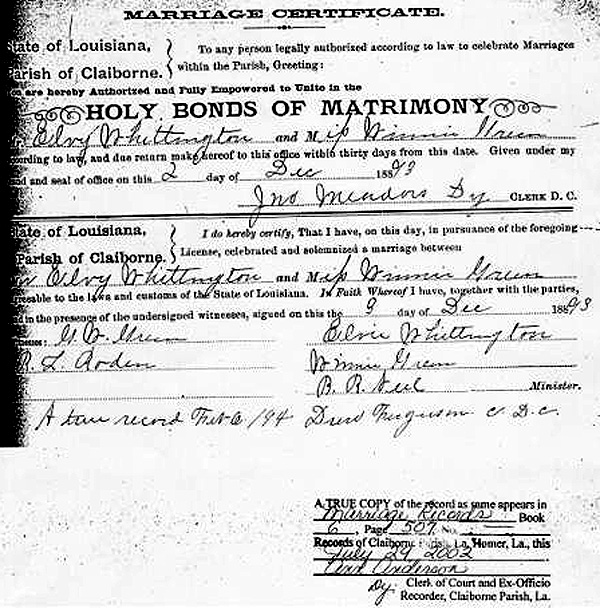 MARRIAGE CERTIFICATE.
State of Louisiana, To any person legally authorized according to law to celebrate Marriages
Parish of Claiborne. within the Parish, Greeting:
are hereby Authorized and Fully Empowered to Unite in the
HOLY BONDS OF MATRIMONY
Elvy Whittington and Miss Winnie Green
ording to law, and due return make hereof to this office within thirty days from this date. Given under my
nd and seal of office on this 2 day of Dec 1893
Jno Meadors Dy CLERK D. C.
State of Louisiana, I do hereby certify, That I have, on this day, in pursuance of the foregoing
Parish of Claiborne. License, celebrated and solemnized a marriage between
Elvy Whittington and Miss Winnie Green
greeable to the laws and customs of the State of Louisiana. In Faith Whereof I have, together with the parties,
nd in the presence of the undersigned witnesses, signed on this the 9 day of Dec 1893
nesses: G. W. Green Elvie Whittington
R. L. Aoden Winnie Green
B. R. Neil Minister.
A true record Feb 6 /94 Drew Ferguson C. D. C.
A TRUE COPY of the record as same appears in
Marriage Records Book
6, Page 507, No.
Records of Claiborne Parish, La, Homer, La., this
July 29 2002
Ann Anderson
By: Clerk of Court and Ex-Officio
Recorder, Claiborne Parish, La.